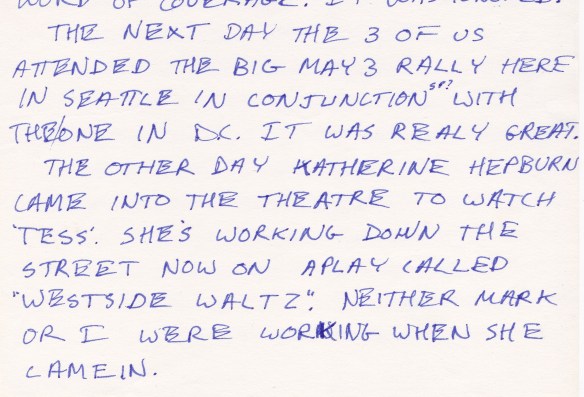 WORD OF COVERAGE. IT WAS
THE NEXT DAY THE 3 OF US
ATTENDED THE BIG MAY 3 RALLY HERE
IN SEATTLE IN CONJUNCTION SP? WITH
THE/ONE IN D.C. IT WAS REALY GREAT.
THE OTHER DAY KATHERINE HEPBURN
CAME INTO THE THEATRE TO WATCH
'TESS'. SHE'S WORKING DOWN THE
STREET NOW ON APLAY CALLED
"WESTSIDE WALTZ". NEITHER MARK
OR I WERE WORKING WHEN SHE
CAMEIN.